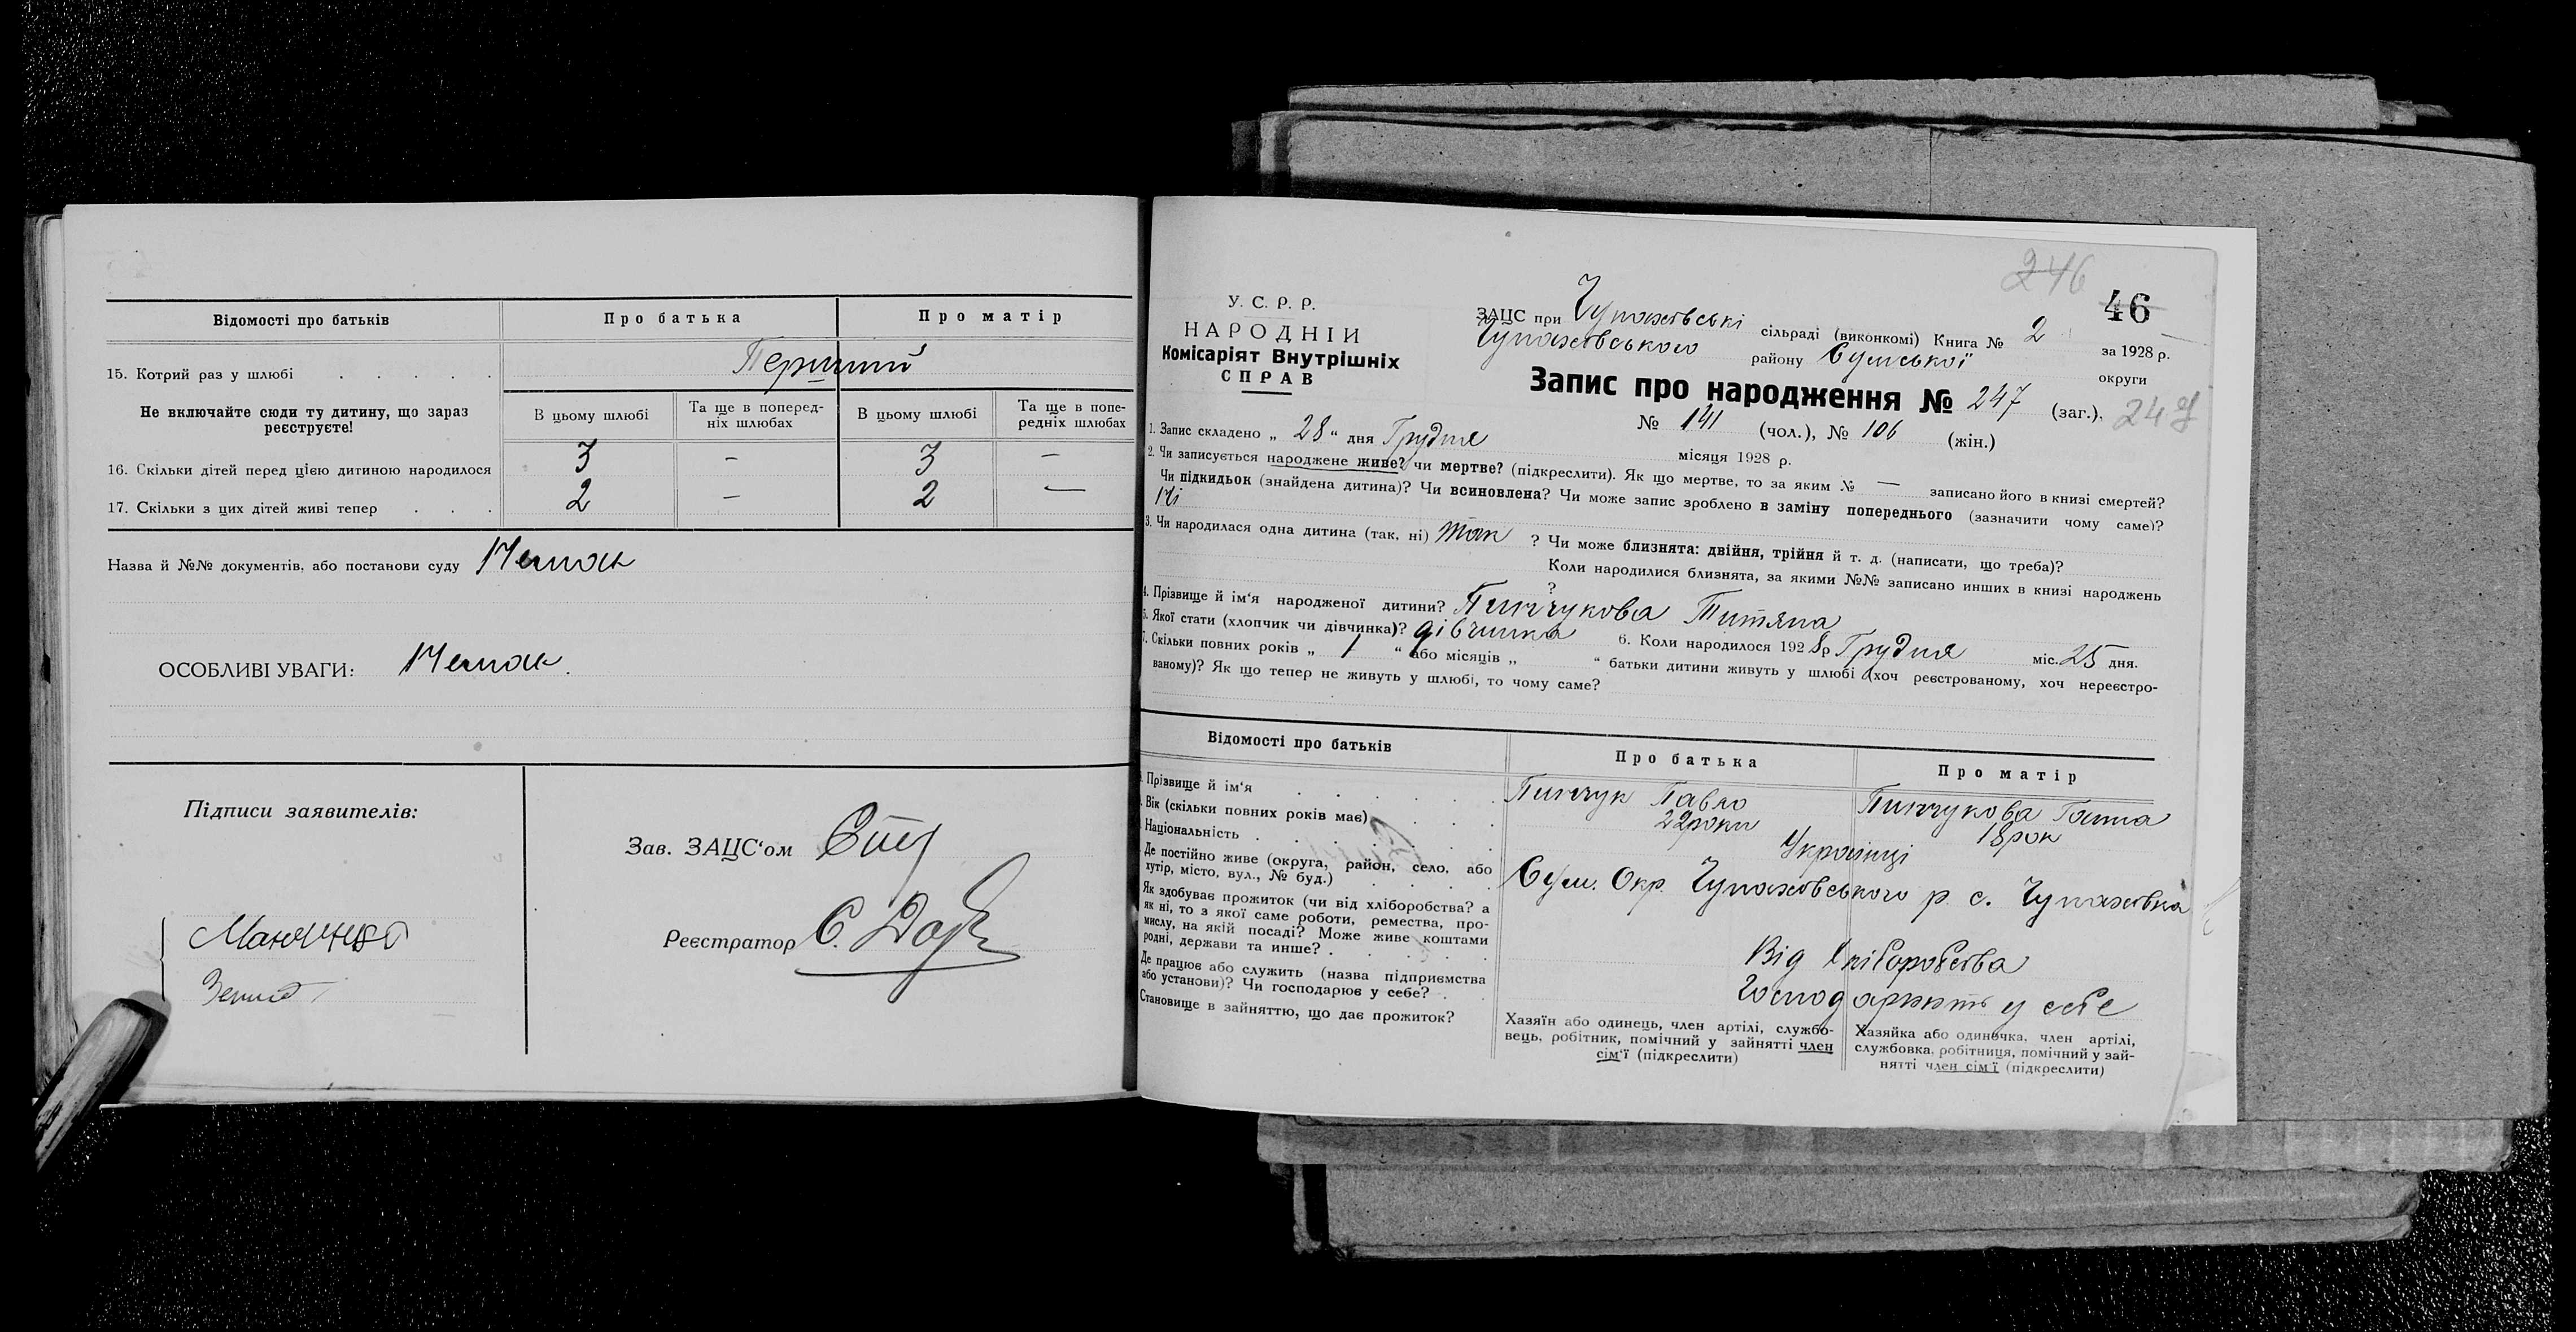 Відомості про батьків
Про батька
Про матір
15. Котрий раз у шлюбі
Перший
Не включайте сюди ту дитину, що зараз реєструєте!
В цьому шлюбі
Та ще в поперед-
ніх шлюбах
В цьому шлюбі
Та ще в попе-
редніх шлюбах
16. Скільки дітей перед цією дитиною народилося 3 – 3 –
17. Скільки з цих дітей живі тепер . . . 2 – 2 –
Назва й №№ документів, або постанови суду Немає
ОСОБЛИВІ УВАГИ: Немає.
Підписи заявителів:
Зав. ЗАЦС'ом
Реєстратор С.
246
46
У. С. Р. Р.
НАРОДНІЙ
Комісаріят Внутрішніх
СПРАВ
ЗАЦС при Чупахівські сільраді (виконкомі) Книга № 2 за 1928 р.
Чупахівського району Сумської округи
Запис про народження № 247 (заг.). 247
№ 141 (чол.), № 106 (жін.)
1. Запис складено „ 28 “ дня Грудня місяця 1928 р.
2. Чи записується народжене живе? чи мертве? (підкреслити). Як що мертве, то за яким № — записано його в книзі смертей?
Чи підкидьок (знайдена дитина)? Чи всиновлена? Чи може запис зроблено в заміну попереднього (зазначити чому саме)?
Ні
3. Чи народилася одна дитина (так, ні) так ? Чи може близнята: двійня, трійня й т. д. (написати, що треба)?
Коли народилися близнята, за якими №№ записано инших в книзі народжень
?
4. Прізвище й ім'я народженої дитини? Пинчукова Титяна
5. Якої стати (хлопчик чи дівчинка)? дівчинка 6. Коли народилося 1928р Грудня міс. 25 дня.
7. Скільки повних років „ 1 “ або місяців „ “ батьки дитини живуть у шлюбі (хоч реєстрованому, хоч нереєстро-
ваному)? Як що тепер не живуть у шлюбі, то чому саме?
Відомості про батьків
Про батька
Про матір
Прізвище й ім'я . . . . . . Пинчук Павло Пинчукова Ганна
Вік (скільки повних років має) . . . 22роки 18рок
Національність . . . . . . Українці
Де постійно живе (округа, район, село, або
хутір, місто, вул., № буд.) . . . . Сум. Окр. Чупахівського р. с. Чупахівка
Як здобуває прожиток (чи від хліборобства? а
як ні, то з якої саме роботи, ремества, про-
мислу, на якій посаді? Може живе коштами
родні, держави та инше? . . . . . Від Хліборобства
Де працює або служить (назва підприємства
або установи)? Чи господарює у себе? . . Господарюють у себе
Становище в зайняттю, що дає прожиток?
Хазяїн або одинець, член артілі, службо-
вець, робітник, помічний у зайнятті член
сім'ї (підкреслити)
Хазяйка або одиночка, член артілі,
службовка, робітниця, помічний у зай-
нятті член сім'ї (підкреслити)